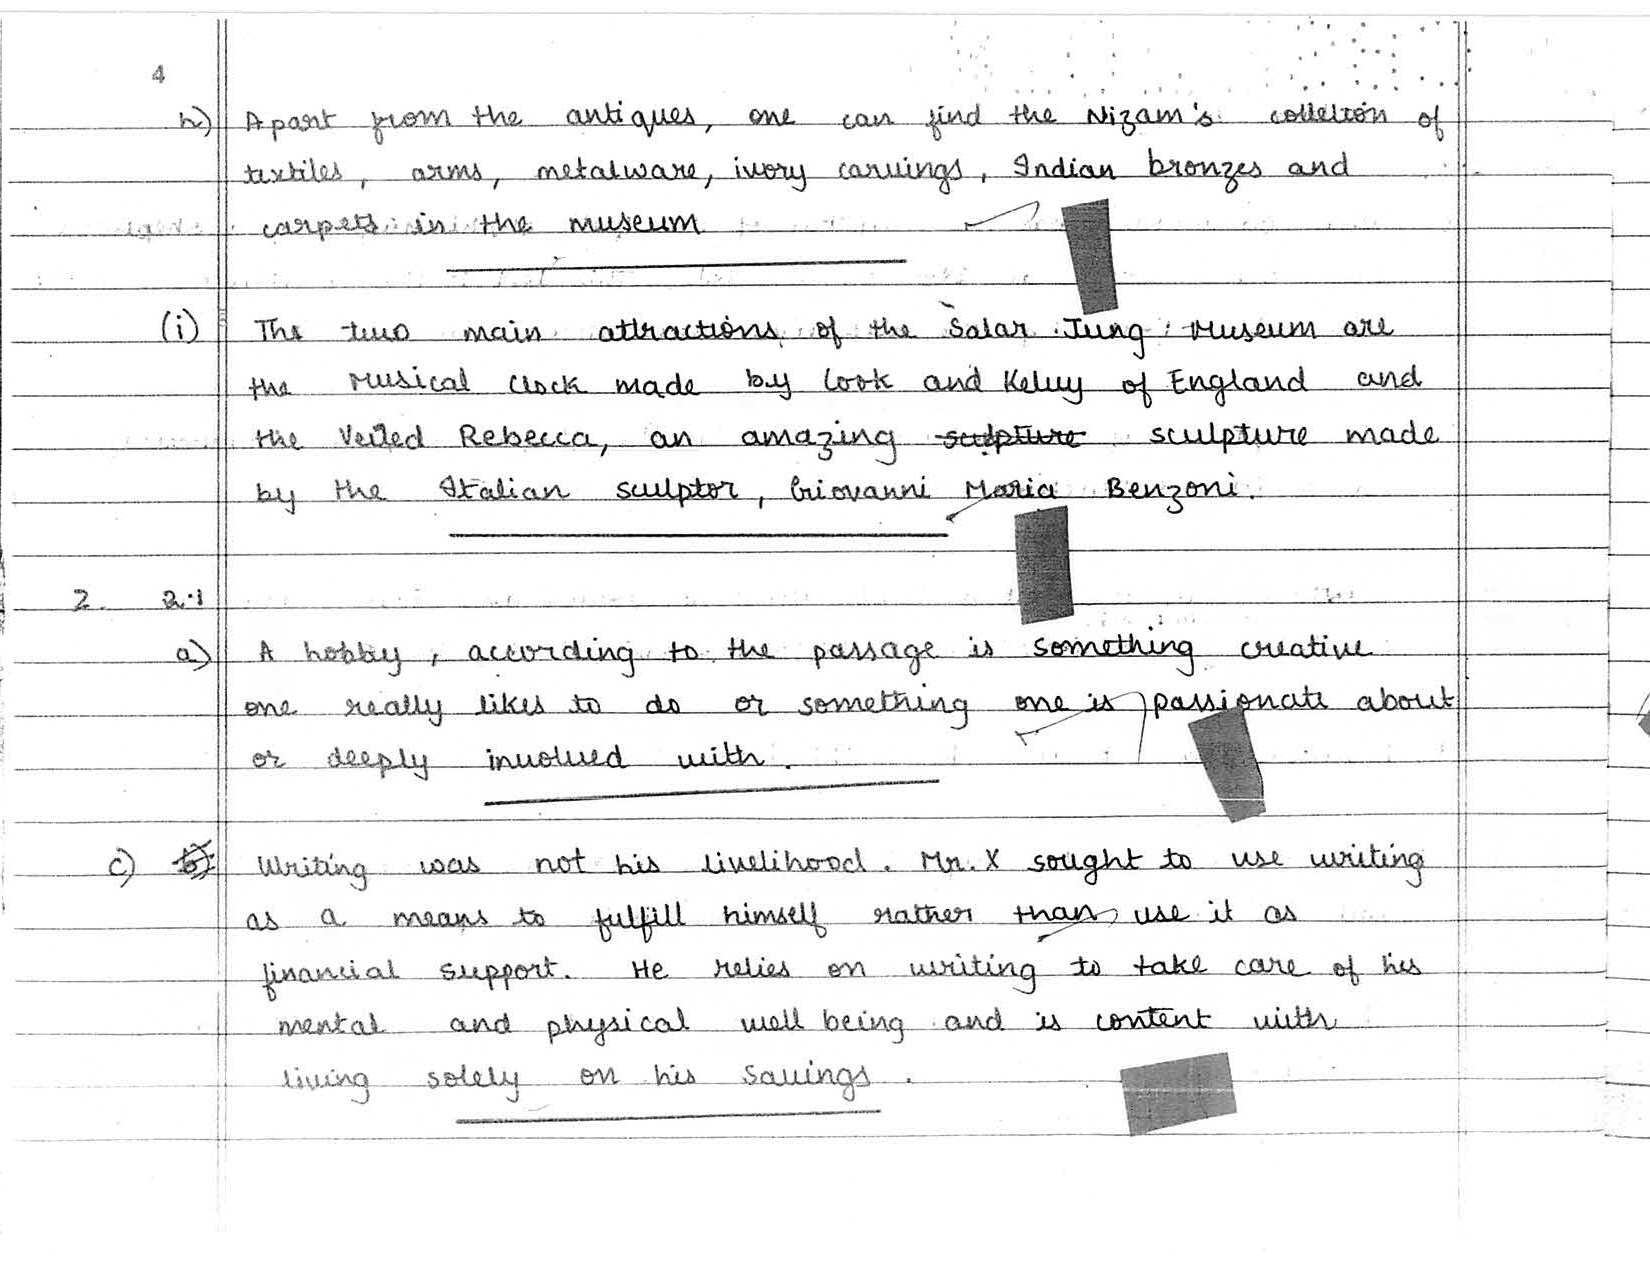 4
h) Apart from the antiques, one can find the Nizam's collection of
textiles, arms, metalware, ivory carvings, Indian bronzes and
carpets in the museum
(i) The two main attractions of the Salar Jung Museum are
the Musical Clock made by Cook and Kelvy of England and
the Veiled Rebecca, an amazing sculpture sculpture made
by the Italian sculptor, Giovanni Maria Benzoni.
2. 2.1
a) A hobby, according to the passage is something creative
one really likes to do or something one is passionate about
or deeply involved with.
c) b) Writing was not his livelihood. Mr. X sought to use writing
as a means to fulfill himself rather than use it as
financial support. He relies on writing to take care of his
mental and physical well being and is content with
living solely on his savings.